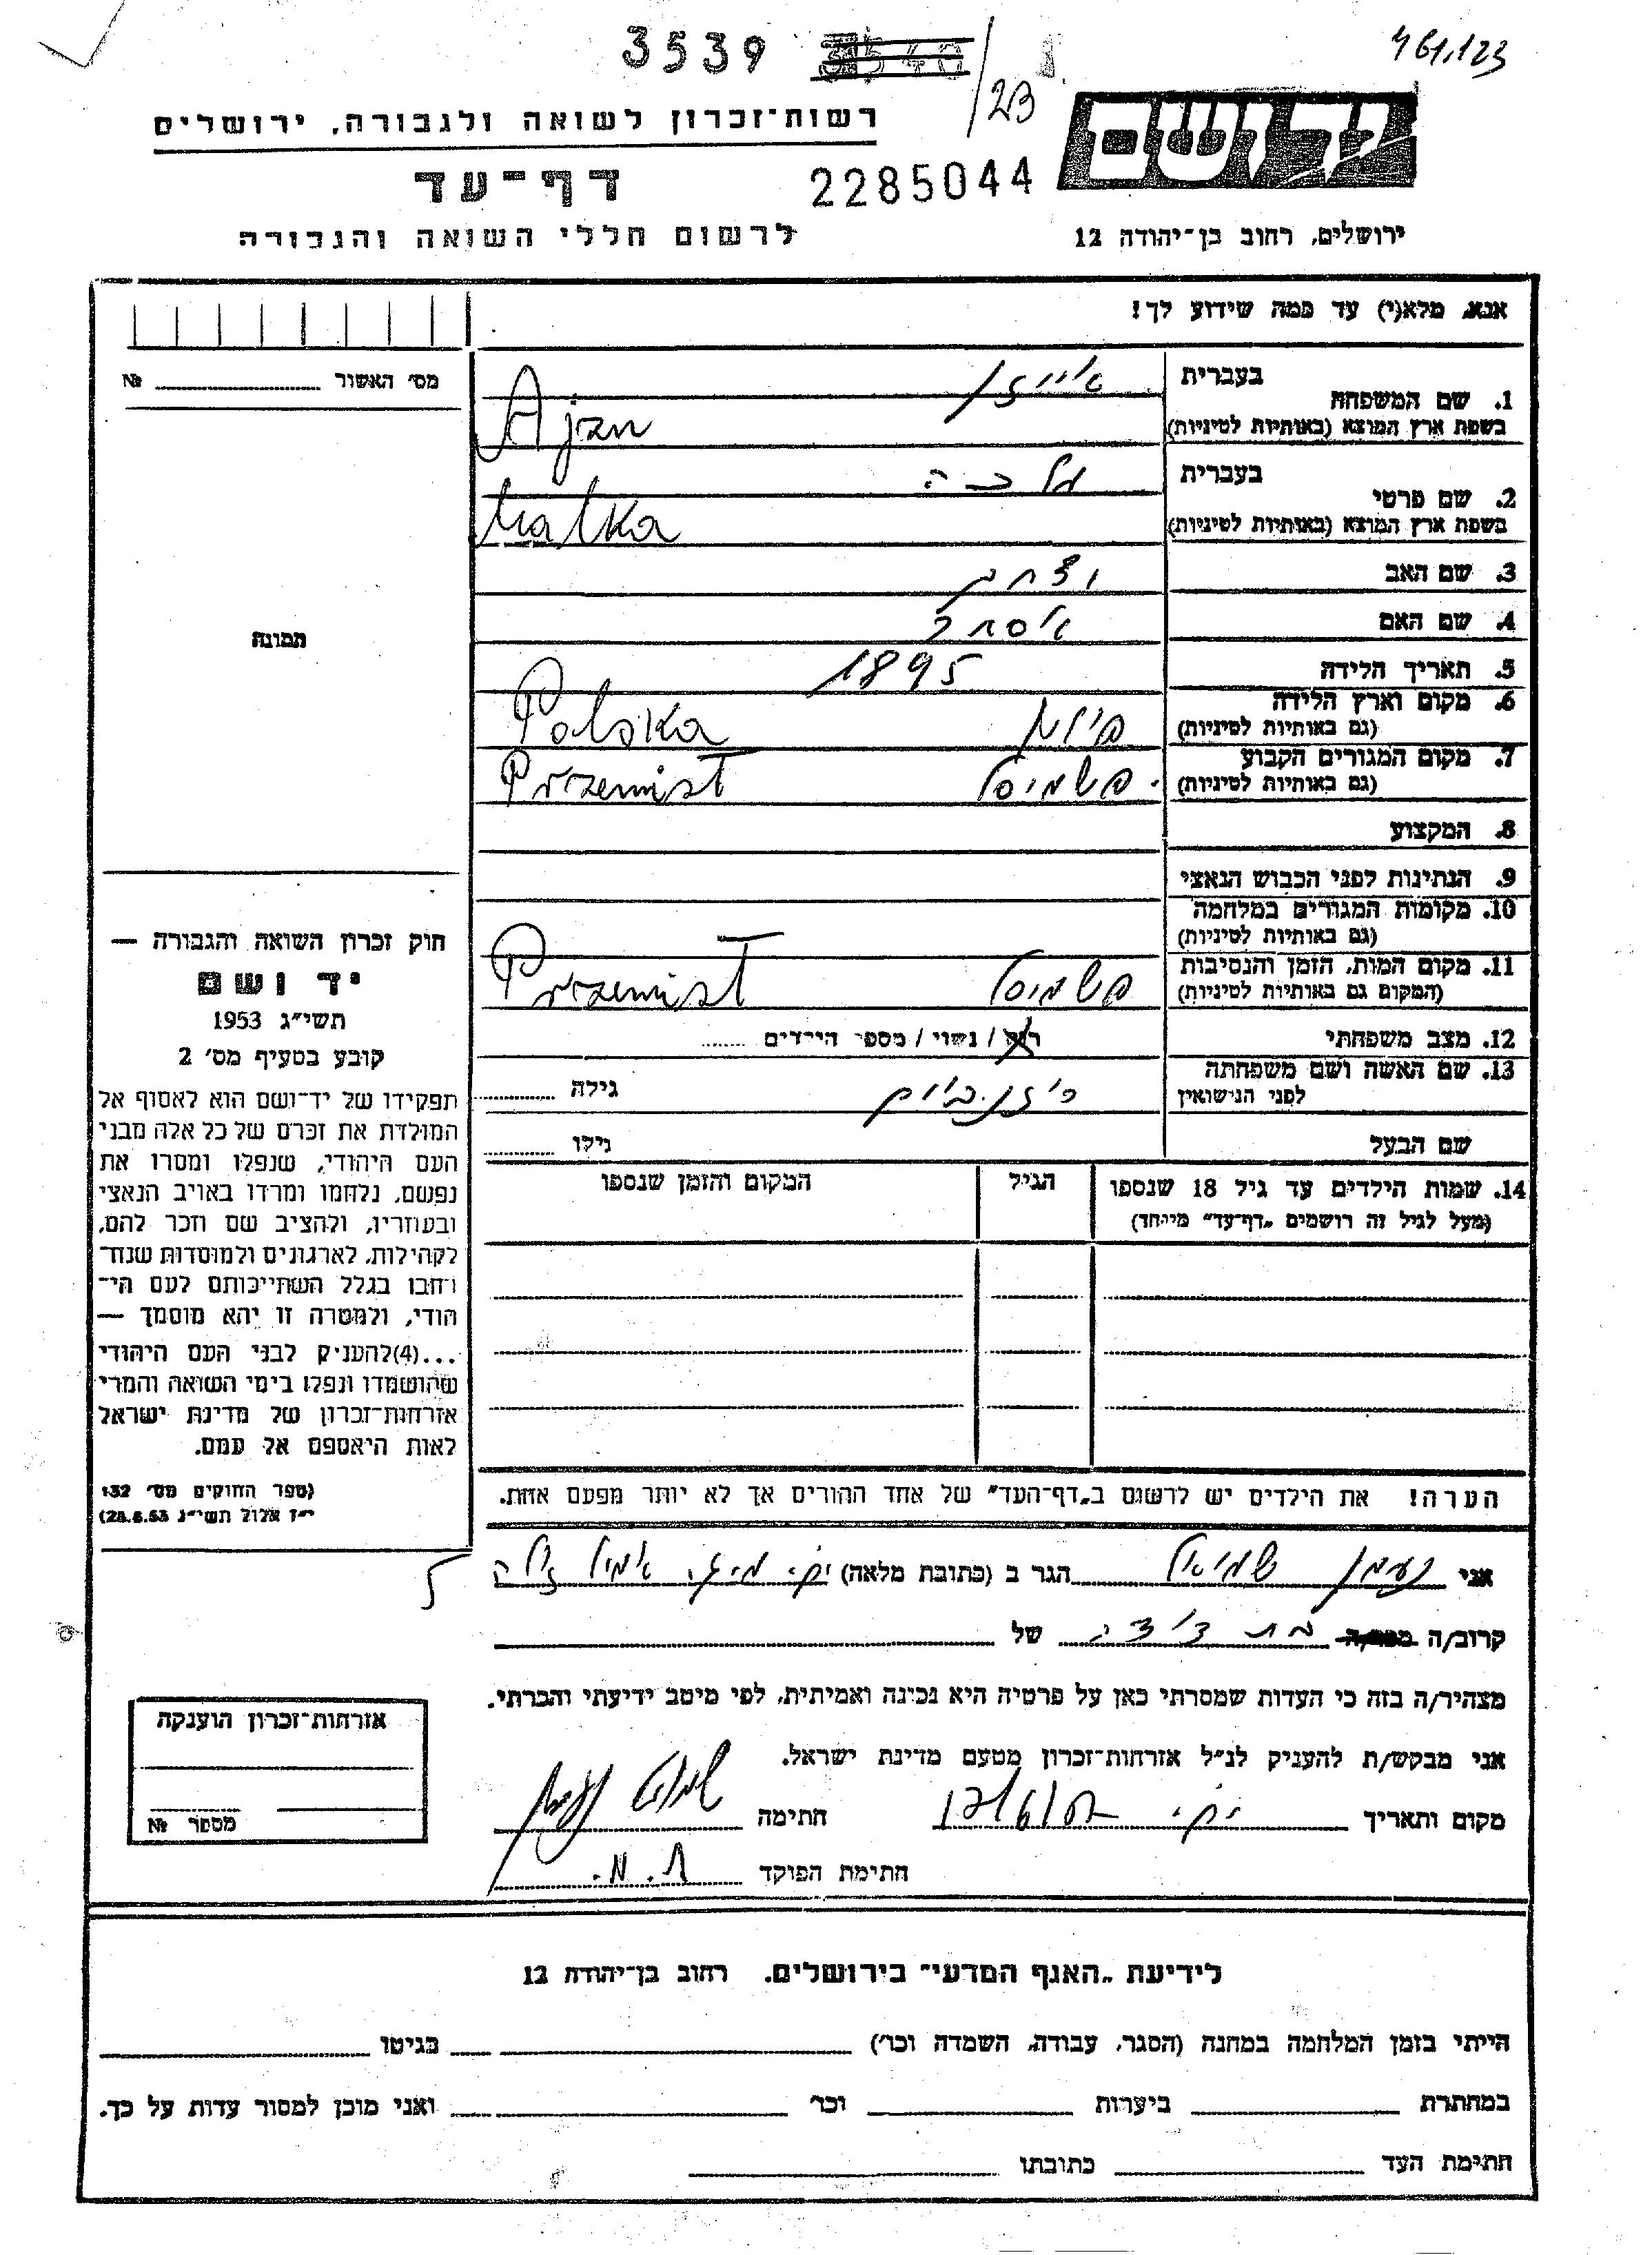 3539 3540 /23
461.123
רשות־זכרון לשואה ולגבורה, ירושלים
יד ושם
דף־עד
2285044
לרשום חללי השואה והגבורה
ירושלים, רחוב בן־יהודה 12
אנא, מלא(י) עד כמה שידוע לך!
מס׳ האשור №
תמונה
1. שם המשפחה
בעברית
בשפת ארץ המוצא (באותיות לטיניות)
אייזן
Ajzn
2. שם פרטי
בעברית
בשפת ארץ המוצא (באותיות לטיניות)
מלכה
Malka
3. שם האב יצחק
4. שם האם אסתר
5. תאריך הלידה 1895
6. מקום וארץ הלידה
(גם באותיות לטיניות)
פולין Polska
7. מקום המגורים הקבוע
(גם באותיות לטיניות)
פשמיסל Przemisł
8. המקצוע
9. הנתינות לפני הכבוש הנאצי
10. מקומות המגורים במלחמה
(גם באותיות לטיניות)
11. מקום המות, הזמן והנסיבות
(המקום גם באותיות לטיניות)
פשמיסל Przemisł
12. מצב משפחתי רוק / נשוי / מספר הילדים
13. שם האשה ושם משפחתה
לפני הנישואין
גילה
שם הבעל גילו
14. שמות הילדים עד גיל 18 שנספו
(מעל לגיל זה רושמים „דף־עד” מיוחד)
הגיל
המקום והזמן שנספו
הערה! את הילדים יש לרשום ב„דף־העד” של אחד ההורים אך לא יותר מפעם אחת.
חוק זכרון השואה והגבורה —
יד ושם
תשי״ג 1953
קובע בסעיף מס׳ 2
תפקידו של יד־ושם הוא לאסוף אל
המולדת את זכרם של כל אלה מבני
העם היהודי, שנפלו ומסרו את
נפשם, נלחמו ומרדו באויב הנאצי
ובעוזריו, ולהציב שם וזכר להם,
לקהילות, לארגונים ולמוסדות שנח־
רחבו בגלל השתייכותם לעם הי־
הודי, ולמטרה זו יהא מוסמך —
...(4)להעניק לבני העם היהודי
שהושמדו ונפלו בימי השואה והמרי
אזרחות־זכרון של מדינת ישראל
לאות היאספם אל עמם.
(ספר החוקים מס׳ 132
י״ז אלול תשי״ג 28.8.53)
אני נעמן שמואל הגר ב (כתובת מלאה) אמיל זולה
5
קרוב/ה מכר/ה בת דודה של
מצהיר/ה בזה כי העדות שמסרתי כאן על פרטיה היא נכונה ואמיתית, לפי מיטב ידיעתי והכרתי.
אני מבקש/ת להעניק לנ״ל אזרחות־זכרון מטעם מדינת ישראל.
מקום ותאריך חתימה שמואל נעמן
חתימת הפוקד ת. מ.
אזרחות־זכרון הוענקה
מספר №
לידיעת „האגף המדעי” בירושלים, רחוב בן־יהודה 12
הייתי בזמן המלחמה במחנה (הסגר, עבודה, השמדה וכו׳) בגיטו
במחתרת ביערות וכו׳ ואני מוכן למסור עדות על כך.
חתימת העד כתובתו